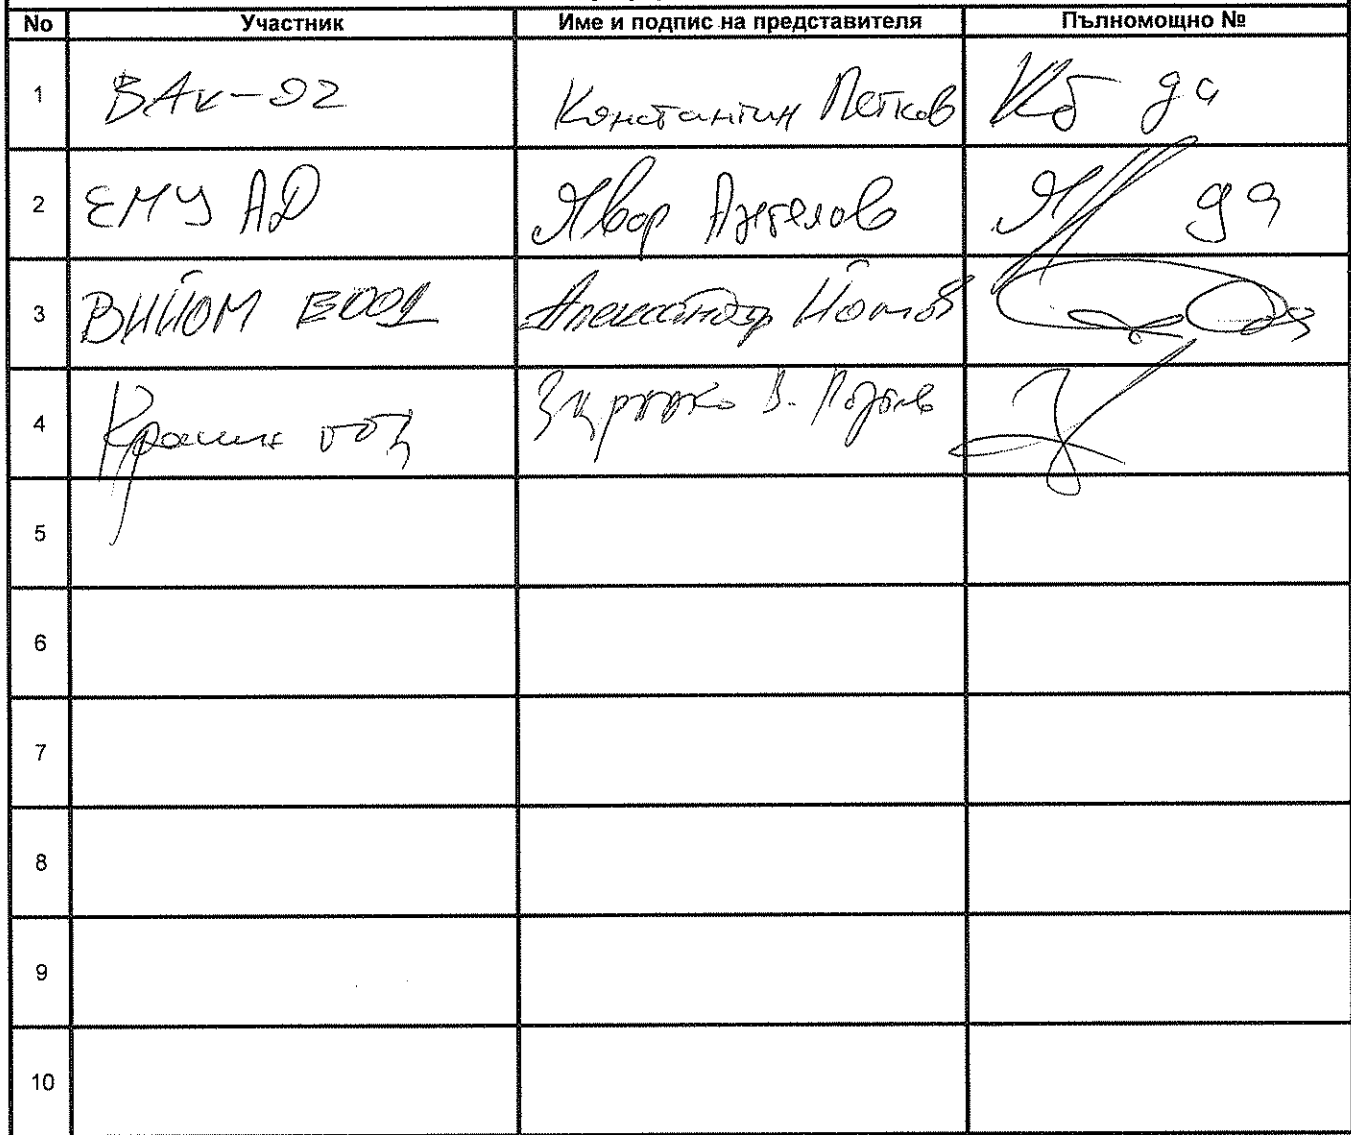 No Участник Име и подпис на представителя Пълномощно №
1 ВАК-92 Константин Петков да
2 ЕМУ АД Явор Ангелов да
3 ВИЙОМ ЕООД Александър Йотов да
4 Крамик ООД В.
5
6
7
8
9
10